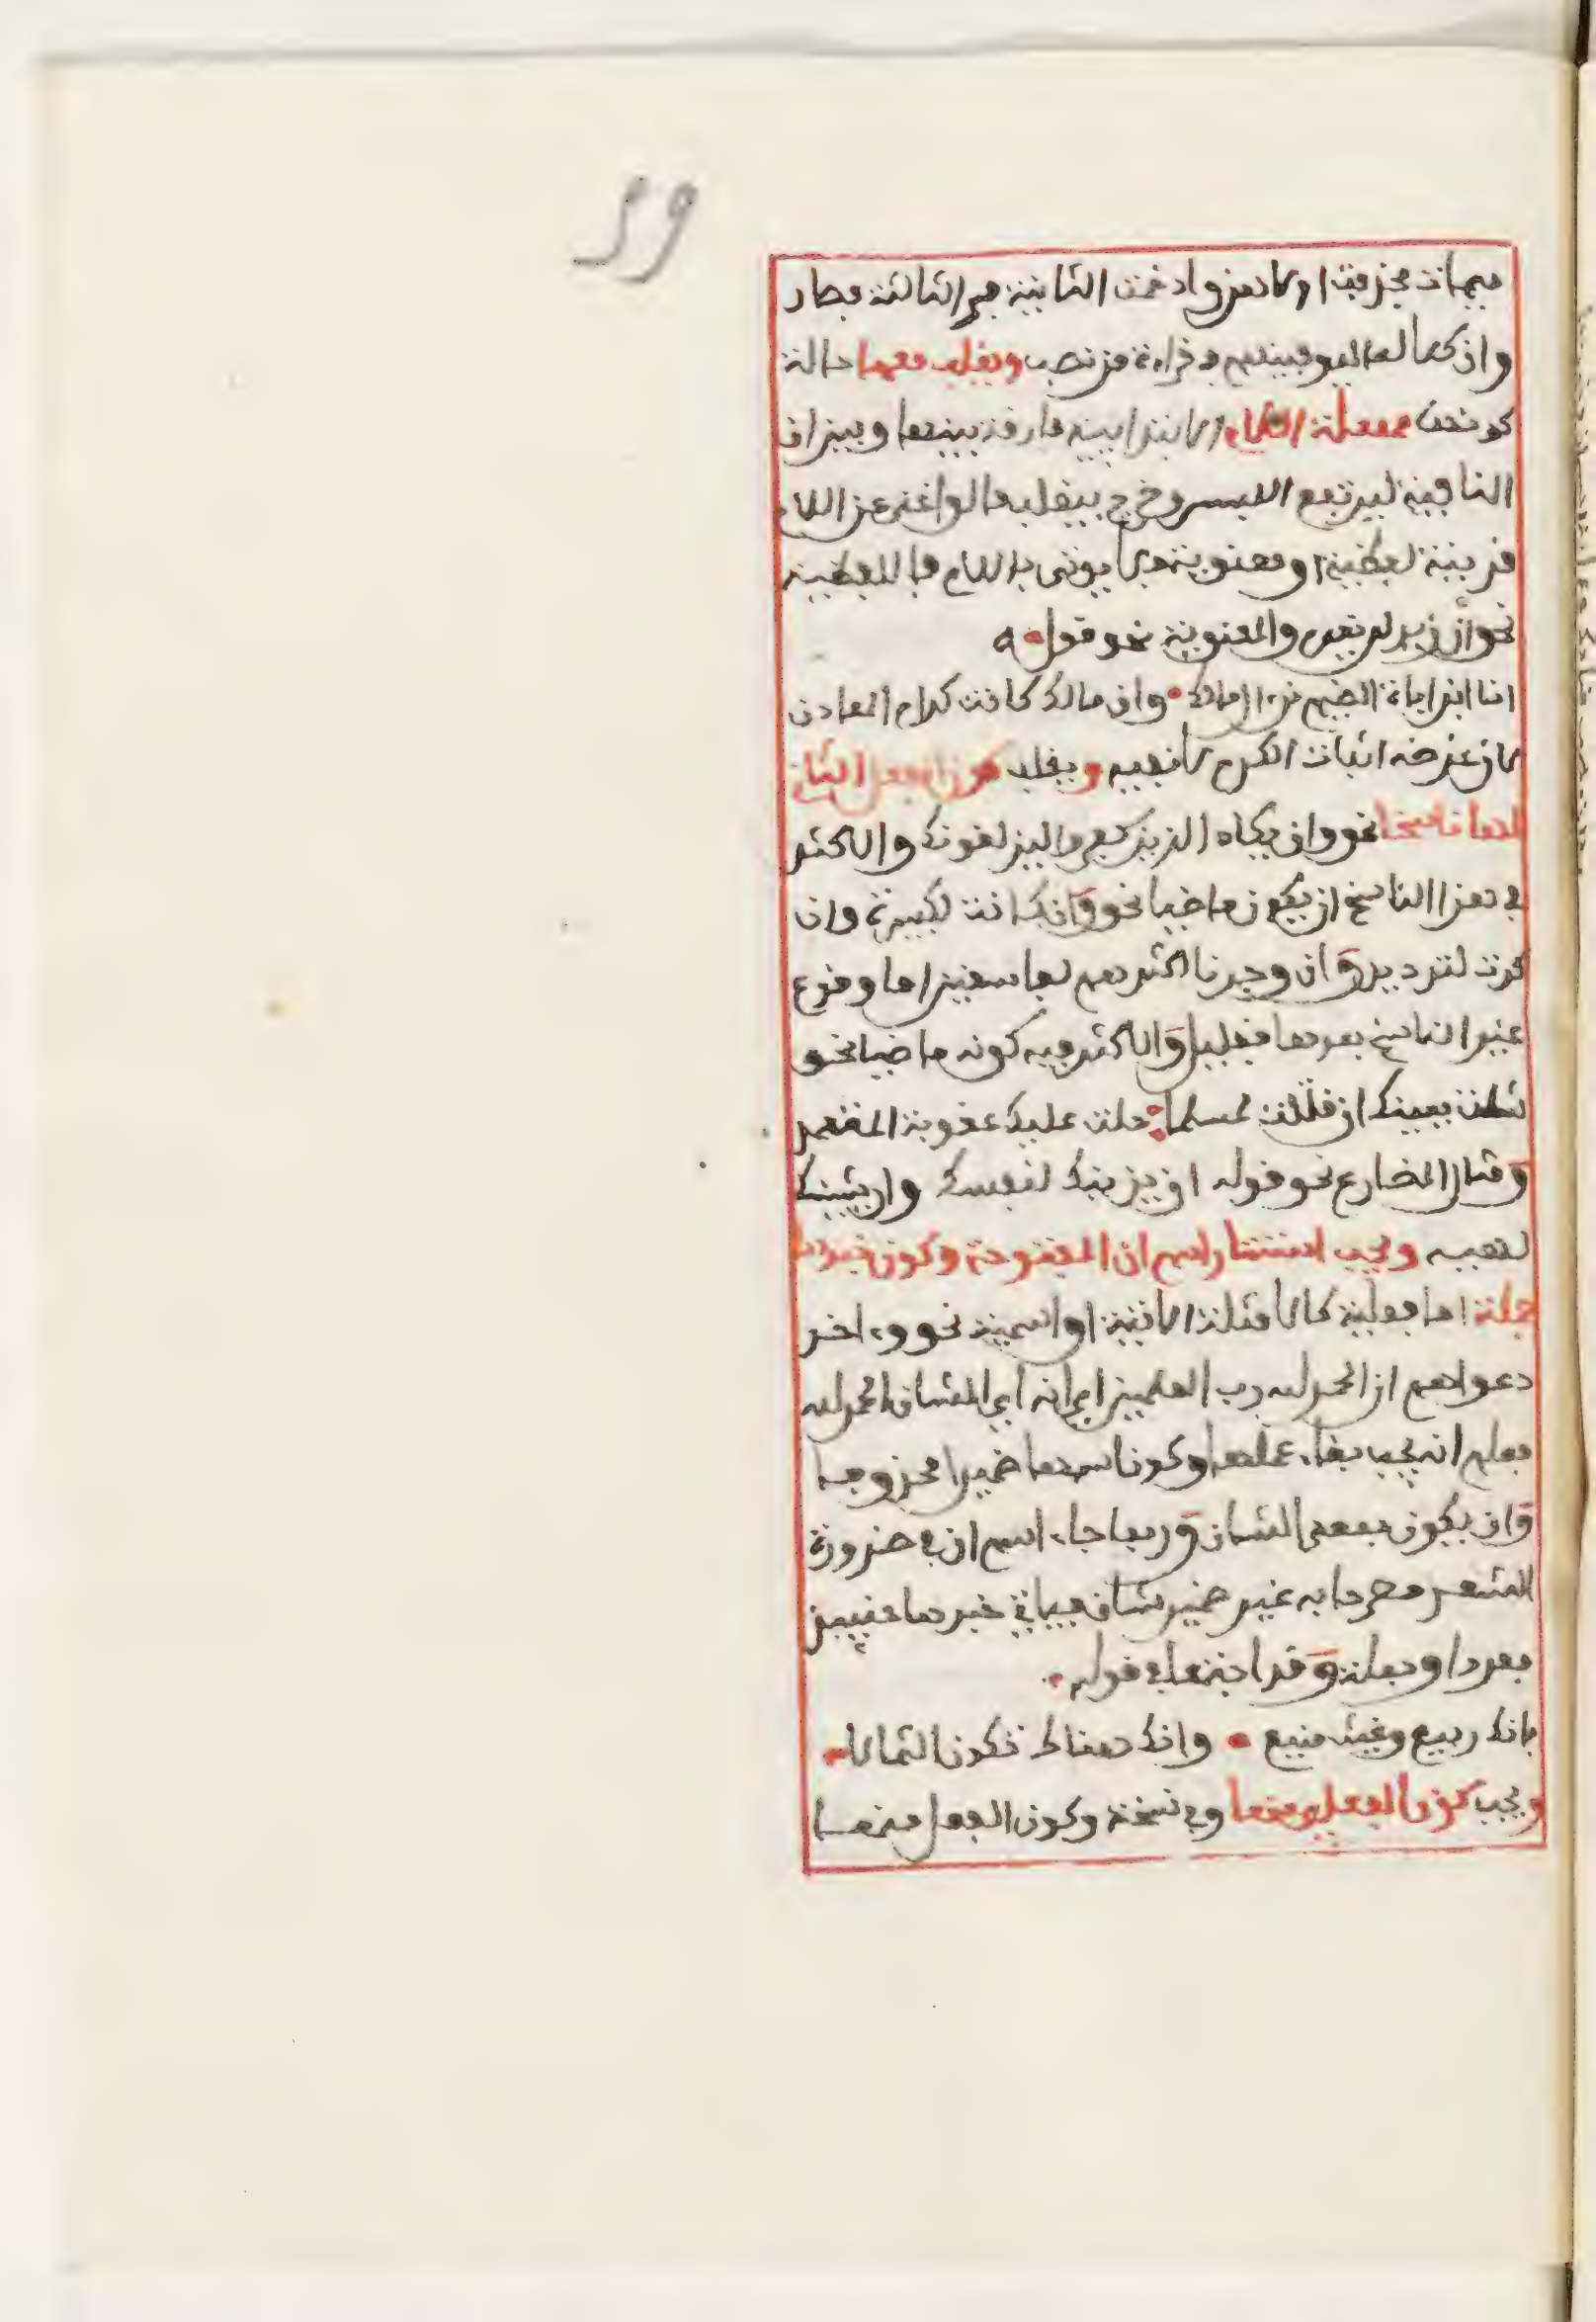 ميمات فحذفت الاولى منهن وادغمت الثانية في الثالثة فصار
وان كلا لما ليوفينهم في قراءة من نصب ويغلب معها حالة
كونها مهملة اللام الابتدائية فارقة بينها وبين ان
النافية ليرتفع اللبس وخرج بيغلب ما لو اغنى عن اللام
قرينة لفظية او معنوية فلا يوتى باللام فاللفظية
نحو ان زيد لم يقم والمعنوية نحو قوله
انا ابن اباة الضيم من ءال مالك وان مالك كانت كرام المعادن
لان غرضه اثبات الكرم لا نفيه ويغلب كون الفعل التالي
لها ناسخا نحو وان يكاد الذين كفروا ليزلقونك والاكثر
في هذا الناسخ ان يكون ماضيا نحو وان كانت لكبيرة وان
كدت لتردين وان وجدنا اكثرهم لفاسقين اما وقوع
غير الناسخ بعدها فقليل والاكثر فيه كونه ماضيا نحو
شلت يمينك ان قتلت لمسلما حلت عليك عقوبة المتعمد
ومثال المضارع نحو قوله ان يزينك لنفسك وان يشينك
لهيه ويجب استتار اسم ان المفتوحة وكون خبرها
جملة اما فعلية كالامثلة الاتية او اسمية نحو وءاخر
دعواهم ان الحمد لله رب العلمين اي انه اي الشان الحمد لله
فعلم انه يجب بقاء عملها وكون اسمها ضميرا محذوفا
وان يكون بمعنى الشان وربما جاء اسم ان في ضرورة
الشعر مصرحا به غير ضمير شان فياتي خبرها حينئذ
مفردا وجملة وقد اجتمعا في قوله
بانك ربيع وغيث مريع وانك هناك تكون الثمالا
ويجب كون الفعل منها وفي نسخة وكون الفعل منها